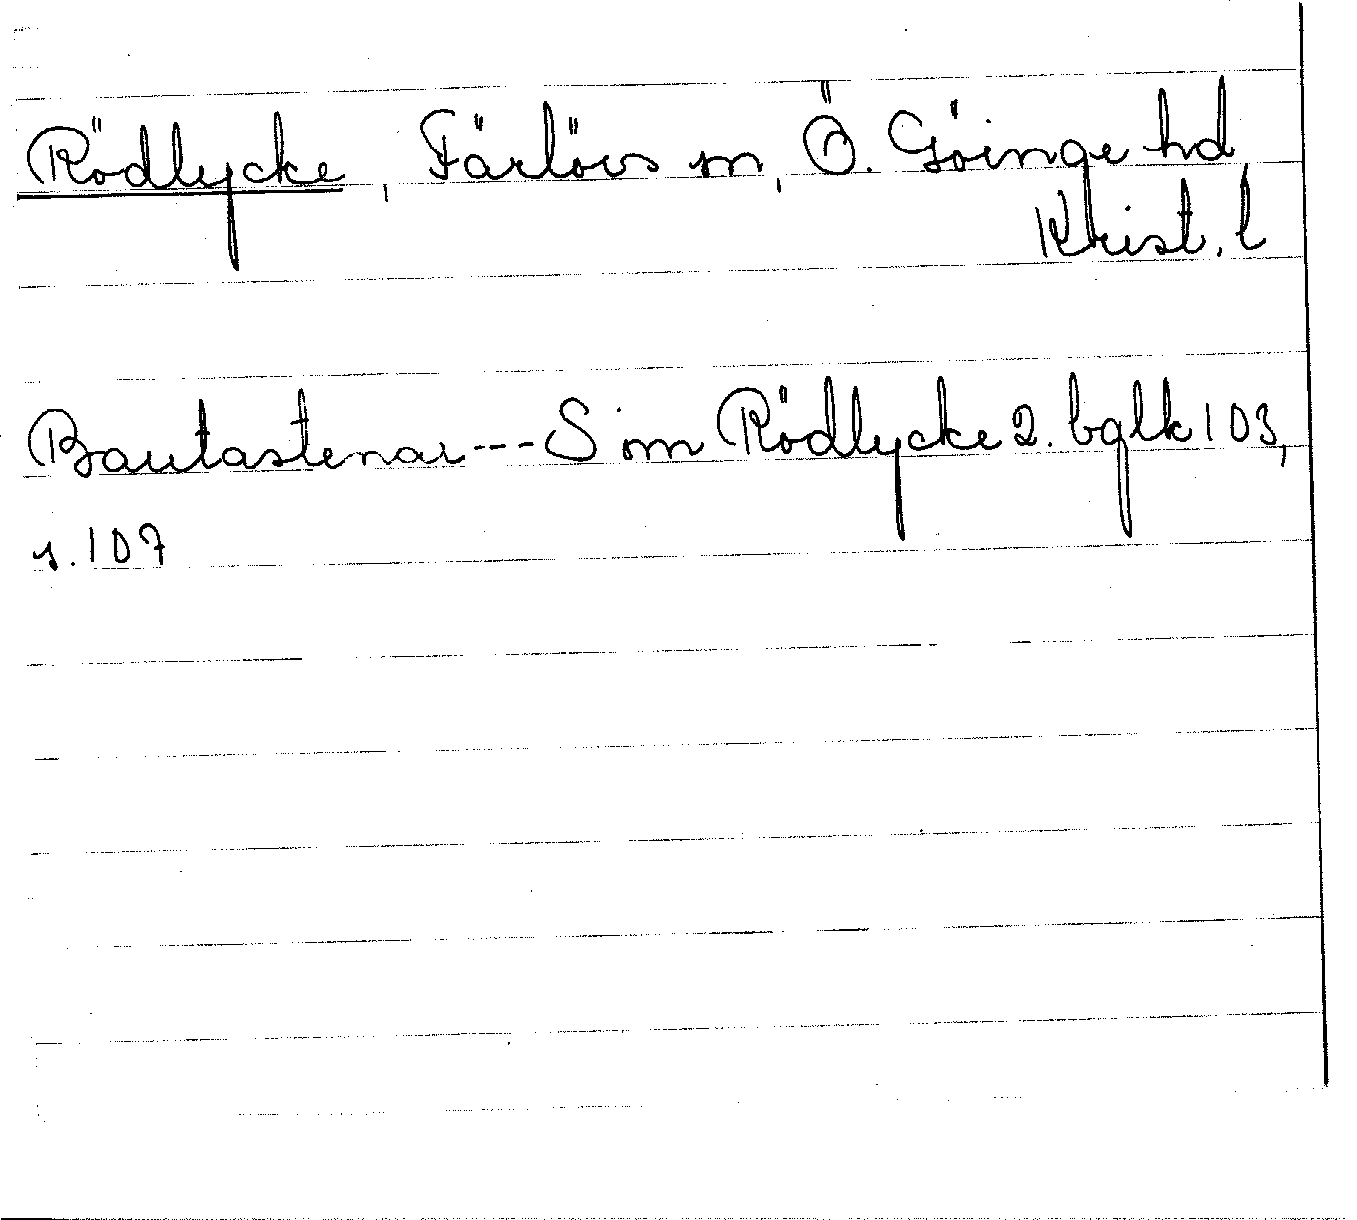 Rödlycke, Färlövs sn, Ö. Göinge hd,
Krist. l
Bautastenar --- S om Rödlycke 2. bglk 103,
s. 107